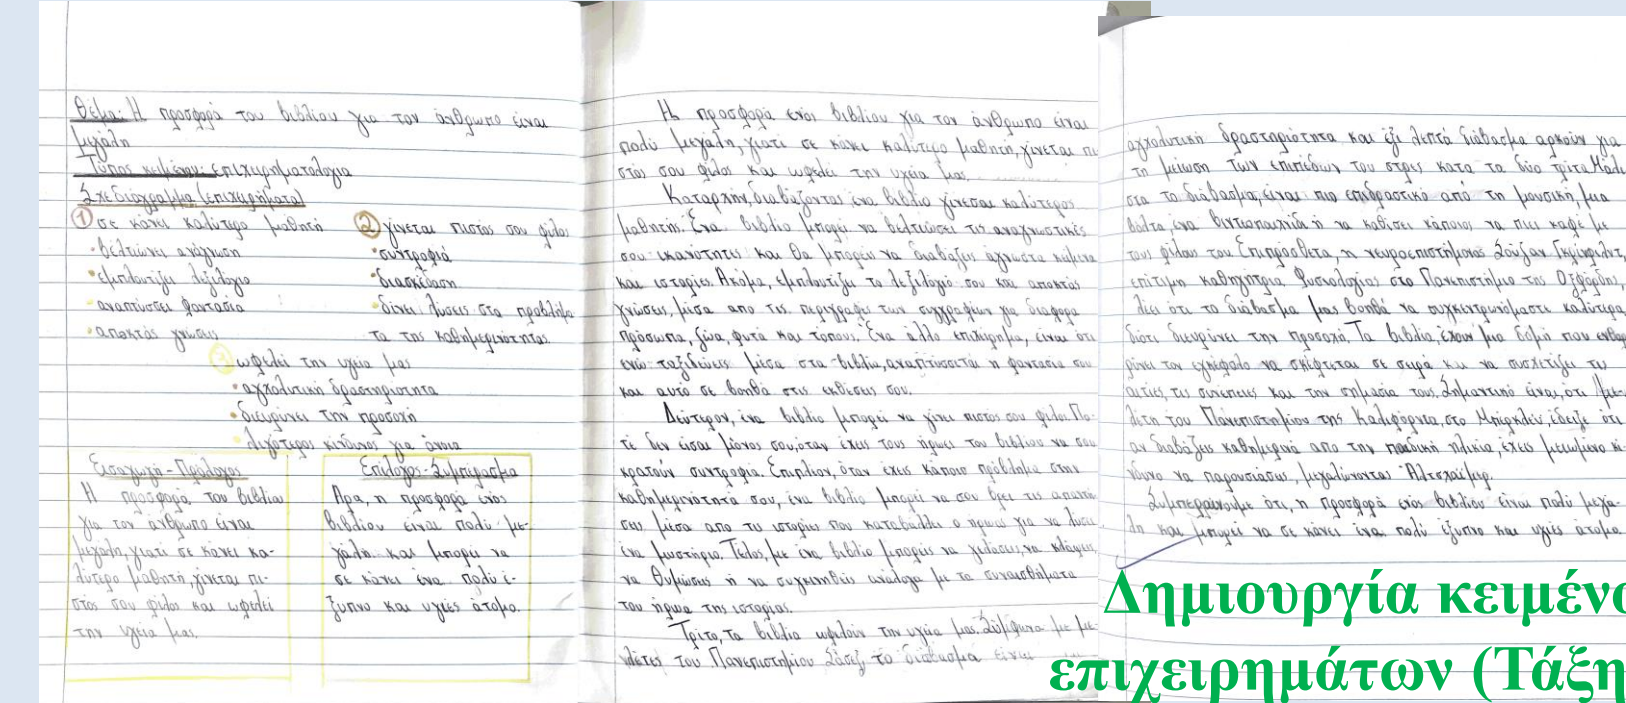 Θέμα: Η προσφορά του βιβλίου για τον άνθρωπο είναι
μεγάλη
Τύπος κειμένου: επιχειρηματολογία
Σχεδιάγραμμα (επιχειρήματα)
① σε κάνει καλύτερο μαθητή
• βελτιώνει ανάγνωση
• εμπλουτίζει λεξιλόγιο
• αναπτύσσει φαντασία
• αποκτάς γνώσεις
② γίνεται πιστός σου φίλος
• συντροφιά
• διασκέδαση
• δίνει λύσεις στα προβλήμα
τα της καθημερινότητας
③ ωφελεί την υγεία μας
• αγχολυτική δραστηριότητα
• διευρύνει την προσοχή
• λιγότερος κίνδυνος για άνοια
Εισαγωγή - Πρόλογος
Η προσφορά του βιβλίου
για τον άνθρωπο είναι
μεγάλη, γιατί σε κάνει κα-
λύτερο μαθητή, γίνεται πι-
στός σου φίλος και ωφελεί
την υγεία μας.
Επίλογος - Συμπέρασμα
Άρα, η προσφορά ενός
βιβλίου είναι πολύ με-
γάλη και μπορεί να
σε κάνει ένα πολύ έ-
ξυπνο και υγιές άτομο.
Η προσφορά ενός βιβλίου για τον άνθρωπο είναι
πολύ μεγάλη, γιατί σε κάνει καλύτερο μαθητή, γίνεται πι
στός σου φίλος και ωφελεί την υγεία μας.
Καταρχήν, διαβάζοντας ένα βιβλίο γίνεσαι καλύτερος
μαθητής. Ένα βιβλίο μπορεί να βελτιώσει τις αναγνωστικές
σου ικανότητες και θα μπορείς να διαβάζεις άγνωστα κείμενα
και ιστορίες. Ακόμα, εμπλουτίζει το λεξιλόγιό σου και αποκτάς
γνώσεις, μέσα απο τις περιγραφές των συγγραφέων για διαφορα
πρόσωπα, ζώα, φυτά και τόπους. Ένα άλλο επιχείρημα, είναι ότι
ενώ ταξιδεύεις μέσα στα βιβλία, αναπτύσσεται η φαντασία σου
και αυτό σε βοηθά στις εκθέσεις σου.
Δεύτερον, ένα βιβλίο μπορεί να γίνει πιστός σου φίλος. Πο-
τέ δεν είσαι μόνος σου, όταν έχεις τους ήρωες του βιβλίου να σου
κρατούν συντροφιά. Επιπλέον, όταν έχεις κάποιο πρόβλημα στην
καθημερινότητά σου, ένα βιβλίο μπορεί να σου βρει τις απαντή
σεις μέσα απο τις ιστορίες που καταβάλλει ο ήρωας για να λύσει
ένα μυστήριο. Τέλος, με ένα βιβλίο μπορείς να γελάσεις, να κλάψεις,
να θυμώσεις ή να συγκινηθείς ανάλογα με τα συναισθήματα
του ήρωα της ιστορίας.
Τρίτο, τα βιβλία ωφελούν την υγεία μας. Σύμφωνα με με-
λέτες του Πανεπιστημίου Σάσεξ, το διάβασμα είναι
αγχολυτική δραστηριότητα και έξι λεπτά διάβασμα αρκούν για
τη μείωση των επιπέδων του στρες κατα τα δύο τρίτα. Μάλι
στα το διάβασμα, είναι πιο επιδραστικό από τη μουσική, μια
βόλτα, ένα βιντεοπαιχνίδι ή να καθίσει κάποιος να πιει καφέ με
τους φίλους του. Επιπρόσθετα, η νευροεπιστήμονας Σούζαν Γκρίνφιλντ,
επίτιμη καθηγήτρια Φυσιολογίας στο Πανεπιστήμιο της Οξφόρδης,
λέει ότι το διάβασμα μας βοηθά να συγκεντρωνόμαστε καλύτερα,
διότι διευρύνει την προσοχή. Τα βιβλία, έχουν μια δομή που ενθαρ
ρύνει τον εγκέφαλο να σκέφτεται σε σειρά και να συσχετίζει τις
αιτίες, τις συνέπειες και τον σημασία τους. Σημαντικό είναι, ότι με-
λέτη του Πανεπιστημίου της Καλιφόρνια, στο Μπέρκλεϋ, έδειξε ότι
αν διαβάζεις καθημερινά απο την παιδική ηλικία, έχεις μειωμένο κί
νδυνο να παρουσιάσεις, μεγαλώνοντας Αλτσχάιμερ.
Συμπεραίνουμε ότι, η προσφορά ενός βιβλίου είναι πολύ μεγά-
λη και μπορεί να σε κάνει ένα πολύ έξυπνο και υγιές άτομο.
Δημιουργία κειμένο
επιχειρημάτων (Τάξη